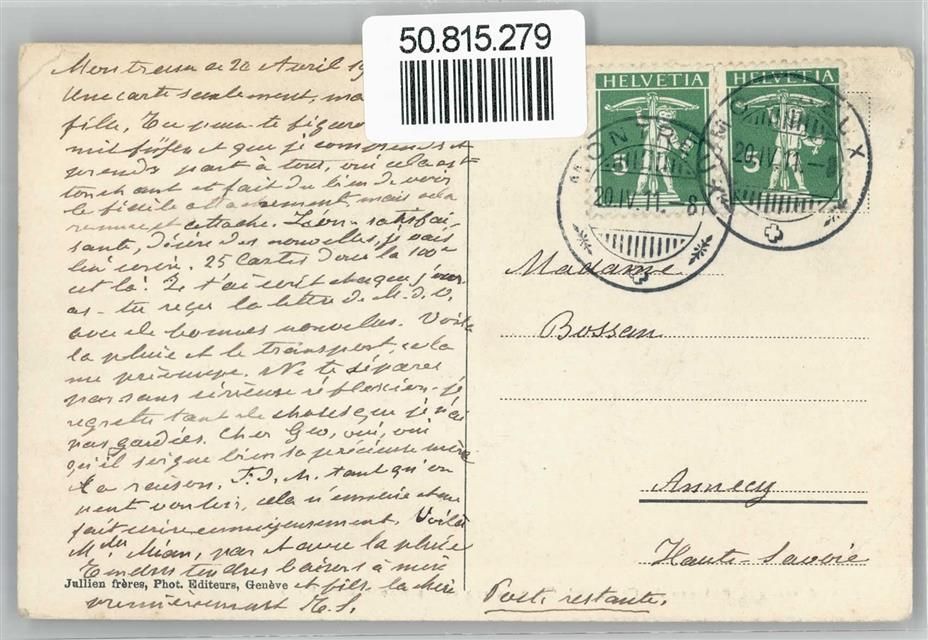 50.815.279
HELVETIA HELVETIA
5 5
MONTREUX
20.IV.11. 8
MONTREUX
20.IV.11. 8
Montreux ce 20 Avril 19
Une carte seulement,
fils, Tu peux te figurer
et que je comprends et
prends part à tout, oui cela est
touchant et fait du bien de voir
le fidèle attachement, mais cela
remue et attache. Léon satisfai-
sante, désire des nouvelles, je vais
lui écrire. 25 Cartes dont la 100e
est là! Je t'ai écrit chaque jour
as-tu reçu la lettre de M. d. V.
avec de bonnes nouvelles. Voilà
la pluie et le transport, cela
me préoccupe. Ne te sépares
pas sans sérieuse réflexion, je
regrette tant de choses que je n'ai
pas gardées. Cher Geo, oui, oui
qu'il soigne bien sa précieuse mère
a raison. tant qu'on
peut vouloir, cela n'
fait écrire ennuyeusement. Voilà
par et avec la pluie
Tendres tendres baisers à mère
et fils
premièrement
Jullien frères, Phot. Editeurs, Genève
Madame
Bossan
Annecy
Haute-Savoie
Poste restante.